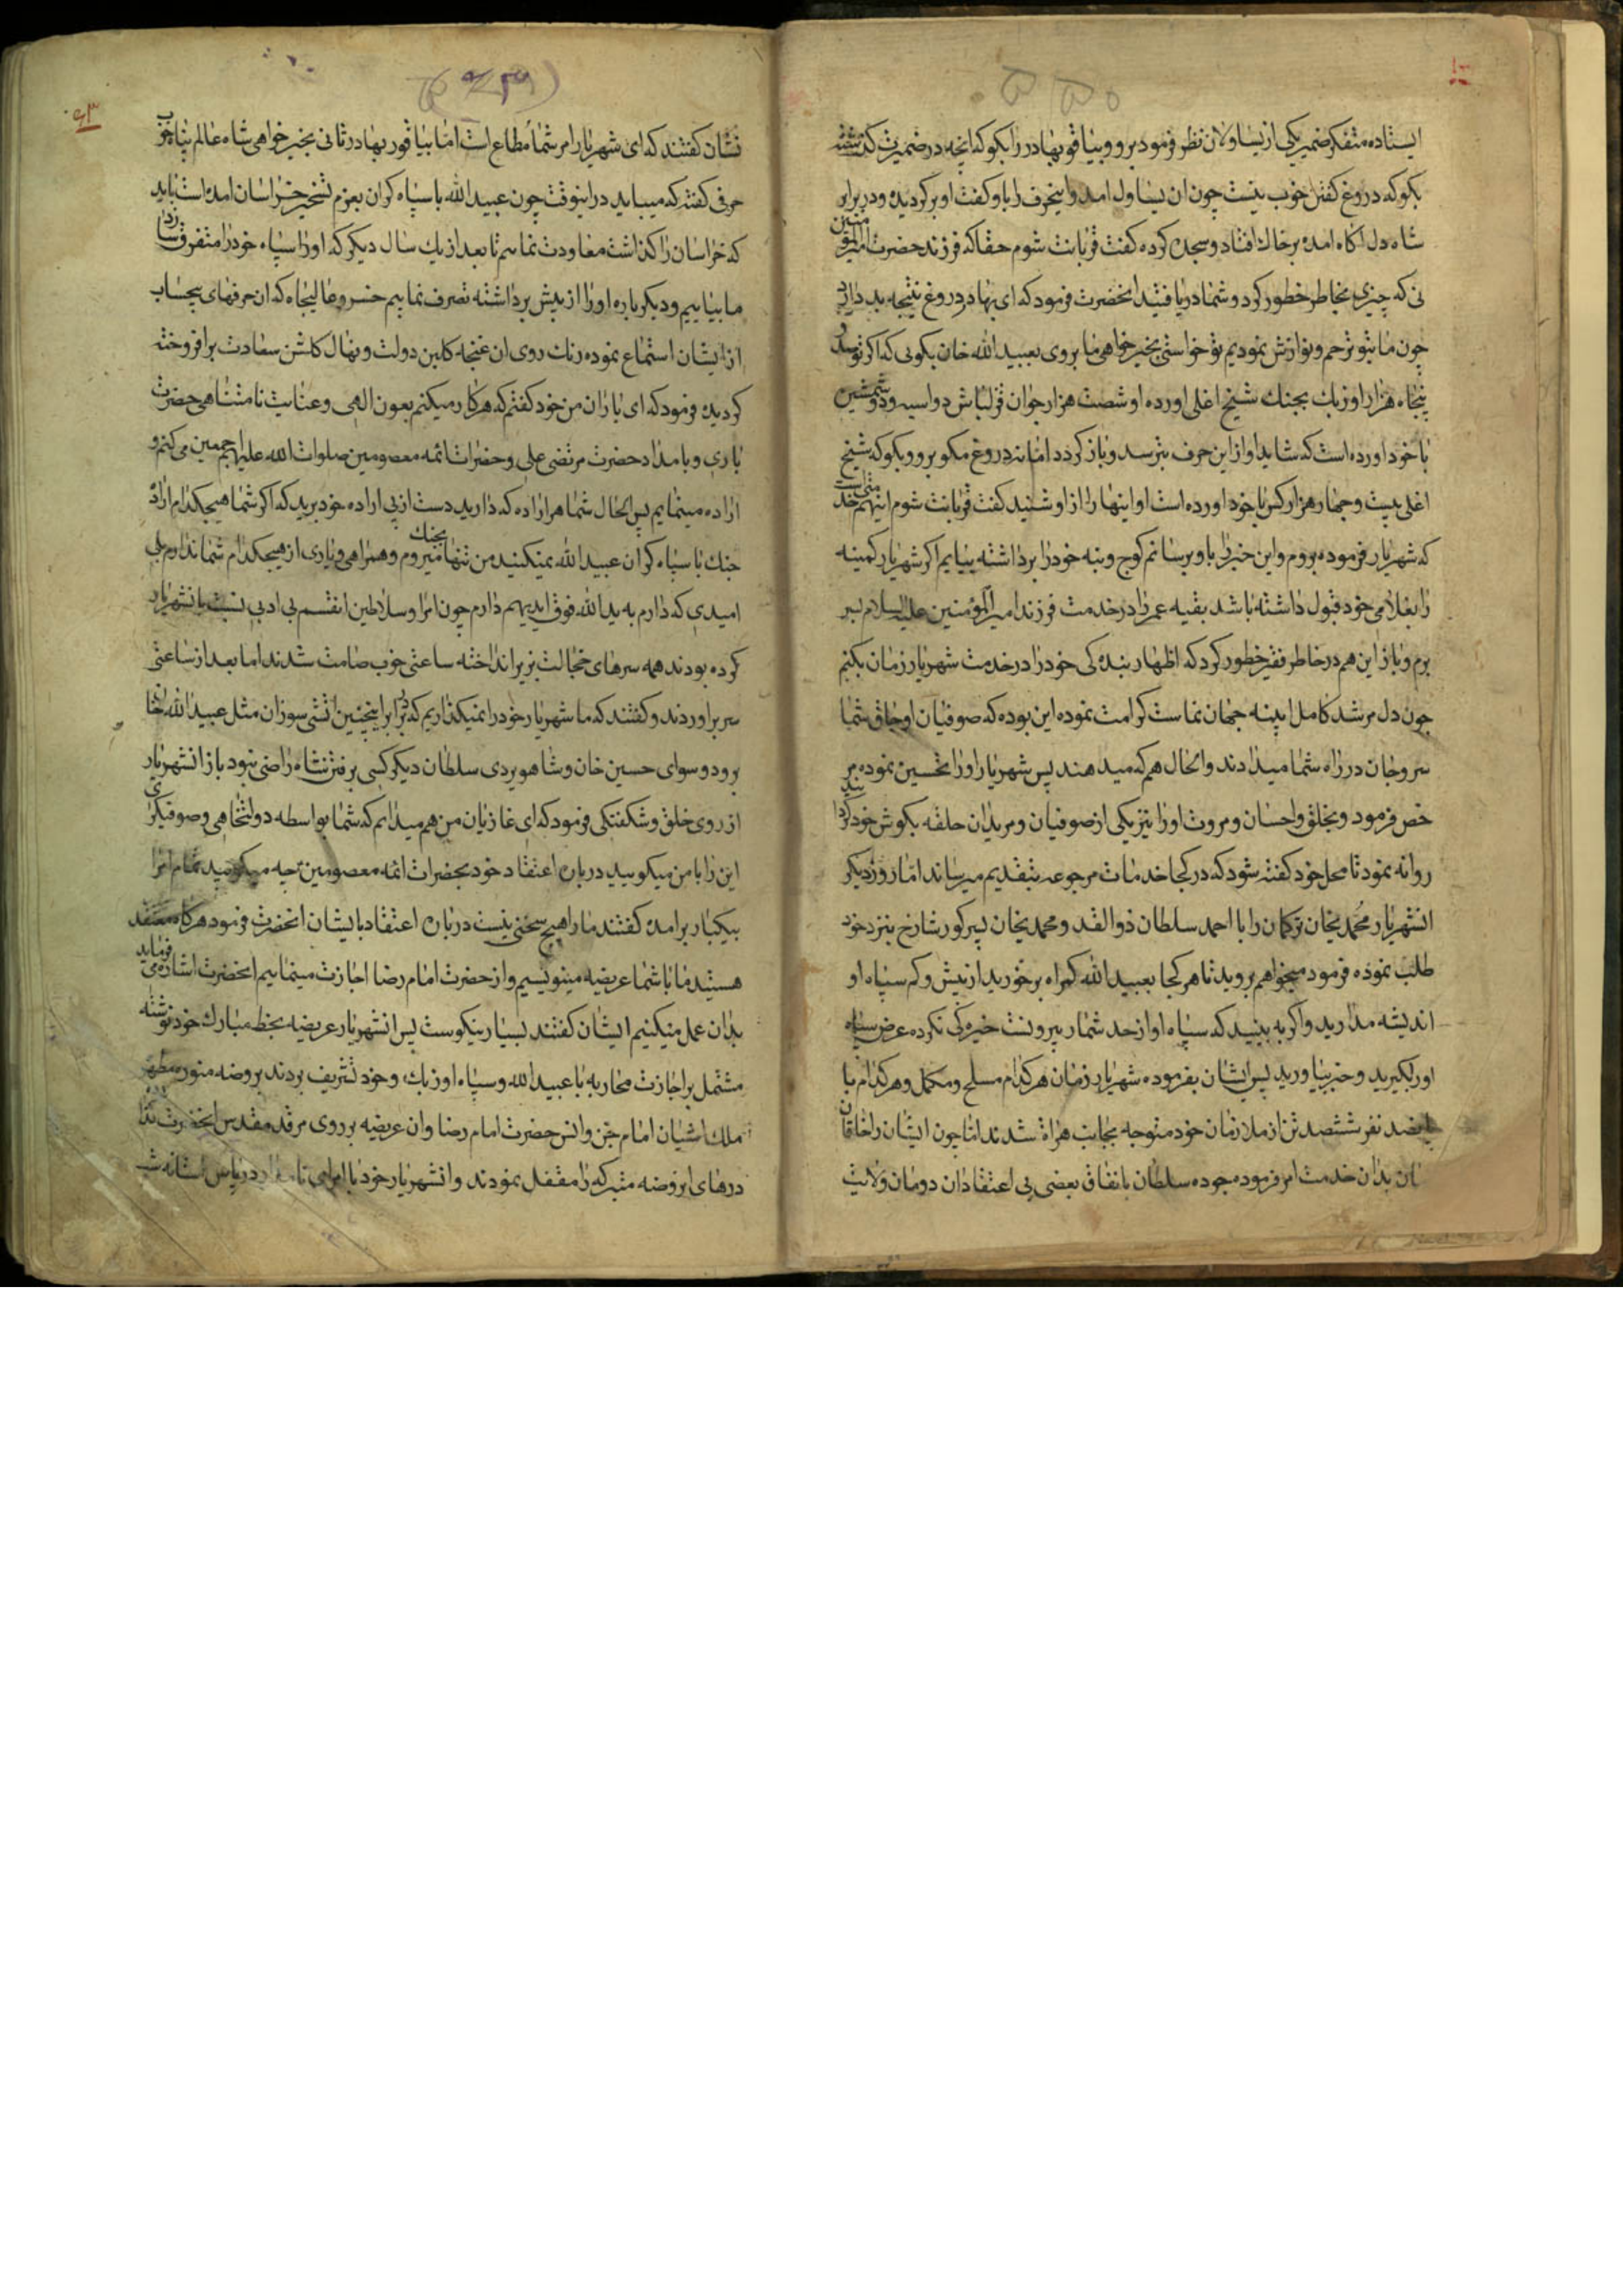 ایستاده متفکر ضمیر یکی از یساولان نظر فرمود برو و بیاقو بهادر را بکو که انچه در ضمیرت کذشته
بکو که دروغ کفتن خوب نیست چون ان یساول امد و اینحرف را باو کفت او بر کردیده و در برابر
شاه دل اکاه امده بر خاک افتاد و سجده کرده کفت قربانت شوم حقا که فرزند حضرت امیر المومنین
نی که چیزی بخاطر خطور کرد و شما دریافتید انحضرت فرمود که ای بهادر دروغ نتیجه بد دارد
چون ما بتو ترحم و نوازش نمودیم تو خواستی بخیر خواهی ما بروی بعبید الله خان بکویی که اکر تو صد و
پنجاه هزار اوزبک بجنک شیخ اغلی اورده او شصت هزار جوان قزلباش دو اسبه و دو شمشیر
با خود اورده است که شاید او از این حرف بترسد و باز کردد اما نه دروغ مکو برو و بکو که شیخ
اغلی بیست و چهار هزار کس با خود اورده است او اینها را از او شنید کفت قربانت شوم اینهم خدمتی است
که شهریار فرموده بروم و این خبر را باو برسانم کوچ و بنه خود را برداشته بیایم اکر شهریار کمینه
را بغلامی خود قبول داشته باشد بقیه عمر را در خدمت فرزند امیر المومنین علیه السلام بسر
برم و باز این هم در خاطر فقیر خطور کرد که اظهار بنده کی خود را در خدمت شهریار زمان بکنم
چون دل مرشد کامل اینه جهان نماست کرامت نموده این بوده که صوفیان اوجاق شما
سر و جان در راه شما میدادند و الحال هم که میدهند پس شهریار او را تحسین نموده مر
خص فرمود و بخلق و احسان و مروت او را نیز یکی از صوفیان و مریدان حلقه بکوش خود کردانید
روانه نمود تا محل خود کفته شود که در کجا خدمات مرجوعه بتقدیم میرساند اما روز دیکر
انشهریار محمد یخان ترکمان را با احمد سلطان ذو القدر و محمد یخان پسر کور شارخ بنزد خود
طلب نموده فرمود میخواهم بروید تا هر کجا بعبید الله کمراه بر خورید از بیش و کم سپاه او
اندیشه مدارید و اکر به بینید که سپاه او از حد شمار بیرونست خیره کی نکرده عرض سپاه
او بکیرید و خبر بیاورید پس ایشان بفرموده شهریار زمان هر کدام مسلح و مکمل و هر کدام با
پانصد نفر ششصد تن از ملازمان خود متوجه بجانب هراة شدند اما چون ایشان را خاقان
بدان خدمت امر فرموده جوده سلطان باتفاق بعضی بی اعتقادان دودمان ولایت
نشان کفتند که ای شهریار امر شما مطاع است اما بیاقور بهادر ثانی بخیر خواهی شاه عالم پناه خوب
حرفی کفته که میباید در اینوقت چون عبید الله با سپاه کران بعزم تسخیر خراسان امده است باید
که خراسان را کذاشت معاودت نماییم تا بعد از یک سال دیکر که او را سپاه خود را متفرق سازد
ما بیاییم و دیکر باره او را از پیش برداشته تصرف نماییم خسرو عالیجاه که ان حرفهای بیحساب
از ایشان استماع نموده رنک روی ان غنچه کلبن دولت و نهال کلشن سعادت بر افروخته
کردیده فرمود که ای یاران من خود کفتم که هر کار میکنم بعون الهی و عنایت نامتناهی حضرت
باری و با مداد حضرت مرتضی علی و حضرات ائمه معصومین صلوات الله علیهم اجمعین می کنم و
اراده مینمایم پس الحال شما هر اراده که دارید دست از پی اراده خود برید که اکر شما هیچکدام اراده
جنک با سپاه کران عبید الله نمیکنید من تنها بجنک میروم و همراهی و یاری از هیچکدام شما ندارم بلی
امیدی که دارم به ید الله فوق ایدیهم دارم چون امرا و سلاطین انقسم بی ادبی نسبت بانشهریار
کرده بودند همه سرهای خجالت بزیر انداخته ساعتی خوب صامت شدند اما بعد از ساعتی
سر براوردند و کفتند که ما شهریار خود را نمیکذاریم که در برابر اینچنین اتشی سوزان مثل عبید الله خان
برود و سوای حسین خان و شاهویردی سلطان دیکر کسی برفتن شاه راضی نبود باز انشهریار
از روی خلق و شکفتکی فرمود که ای غازیان من هم میدانم که شما بواسطه دولتخواهی و صوفیکری
این را با من میکویید در باره اعتقاد خود بحضرات ائمه معصومین چه میکویید تمام امرا
بیکبار برامده کفتند ما را هیچ سخنی نیست درباره اعتقاد بایشان انحضرت فرمود هر کاه معتقد
هستید ما با شما عریضه مینویسیم و از حضرت امام رضا اجازت مینماییم انحضرت اشاره می فرماید
بدان عمل میکنیم ایشان کفتند بسیار نیکوست پس انشهریار عریضه بخط مبارک خود نوشته
مشتمل بر اجازت محاربه با عبید الله و سپاه اوزبک و خود تشریف بردند بروضه منوره مطهره
ملک اشیان امام جن و انس حضرت امام رضا و ان عریضه بر روی مرقد مقدس انحضرت
درهای ان روضه متبرکه را مقفل نمودند و انشهریار خود با امرای در پاس استانه